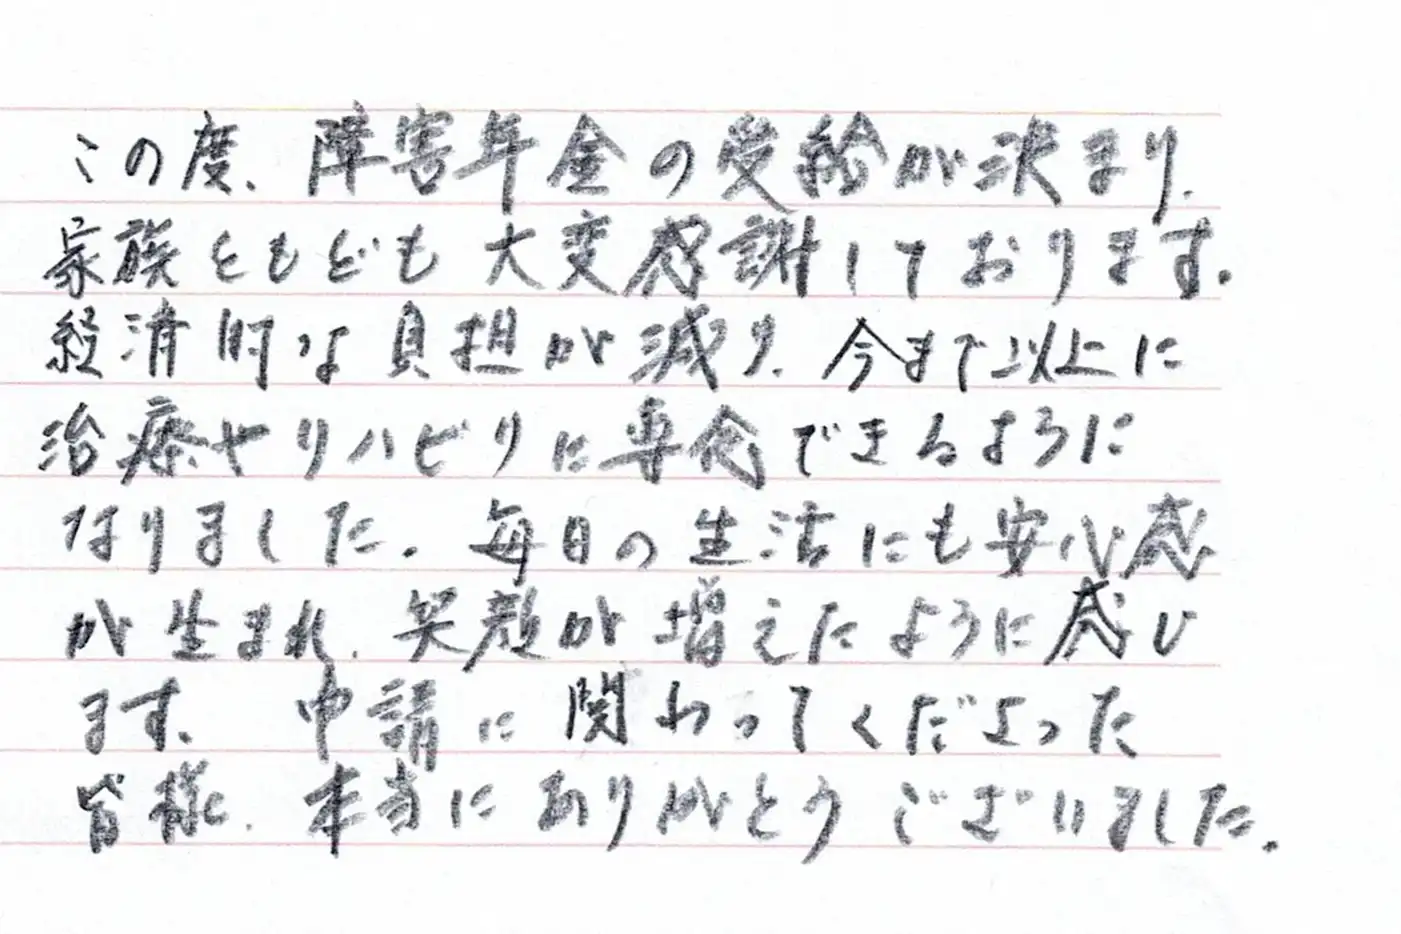 この度、障害年金の受給が決まり、
家族ともども大変感謝しております。
経済的な負担が減り、今まで以上に
治療やリハビリに専念できるように
なりました。毎日の生活にも安心感
が生まれ、笑顔が増えたように感じ
ます。申請に関わってくだよった
皆様、本当にありがとうございました。